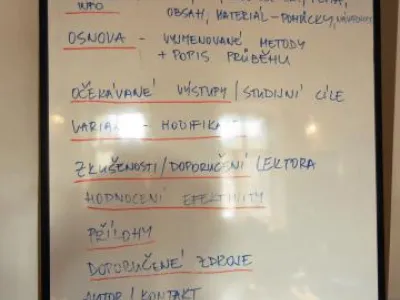 INFO
OBSAH, MATERIÁL - POMŮCKY,
OSNOVA - VYJMENOVANÉ METODY
+ POPIS PRŮBĚHU
OČEKÁVANÉ VÝSTUPY / STUDIJNÍ CÍLE
ZKUŠENOSTI / DOPORUČENÍ LEKTORA
HODNOCENÍ EFEKTIVITY
PŘÍLOHY
DOPORUČENÉ ZDROJE
AUTOR / KONTAKT